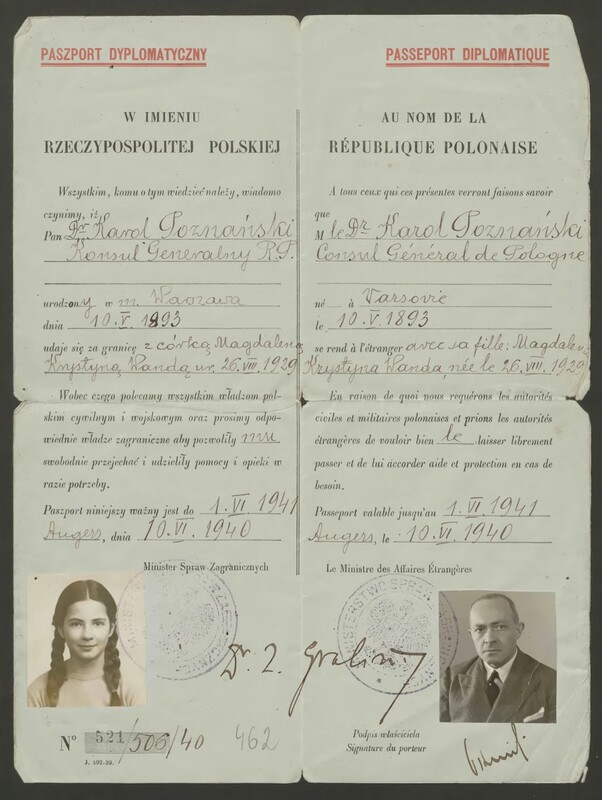 PASZPORT DYPLOMATYCZNY
W IMIENIU
RZECZYPOSPOLITEJ POLSKIEJ
Wszystkim, komu o tym wiedzieć należy, wiadomo
czynimy, iż
Pan Dr. Karol Poznański
Konsul Generalny R.P.
urodzony w m. Warszawa
dnia 10.V.1893
udaje się za granicę z córką Magdaleną
Krystyną Wandą ur. 26.VIII.1929
Wobec czego polecamy wszystkim władzom pol-
skim cywilnym i wojskowym oraz prosimy odpo-
wiednie władze zagraniczne aby pozwoliły mu
swobodnie przejechać i udzieliły pomocy i opieki w
razie potrzeby.
Paszport niniejszy ważny jest do 1.VI.1941
Angers, dnia 10.VI.1940
Minister Spraw Zagranicznych
Nº 521/506/40 462
J. 109.39.
PASSEPORT DIPLOMATIQUE
AU NOM DE LA
RÉPUBLIQUE POLONAISE
A tous ceux qui ces présentes verront faisons savoir
que
M le Dr Karol Poznański
Consul Général de Pologne
né à Varsovie
le 10.V.1893
se rend à l'étranger avec sa fille: Magdalena
Krystyna Wanda, née le 26.VIII.1929
En raison de quoi nous requérons les autorités
civiles et militaires polonaises et prions les autorités
étrangères de vouloir bien le laisser librement
passer et de lui accorder aide et protection en cas de
besoin.
Passeport valable jusqu'au 1.VI.1941
Angers, le 10.VI.1940
Le Ministre des Affaires Étrangères
Podpis właściciela
Signature du porteur